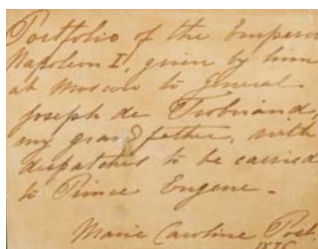 Portfolio of the Emperor
Napoleon I, given by him
at Moscow to General
Joseph de Trobriand,
my grandfather, with
despatches to be carried
to Prince Eugene.
Marie Caroline Post
1876